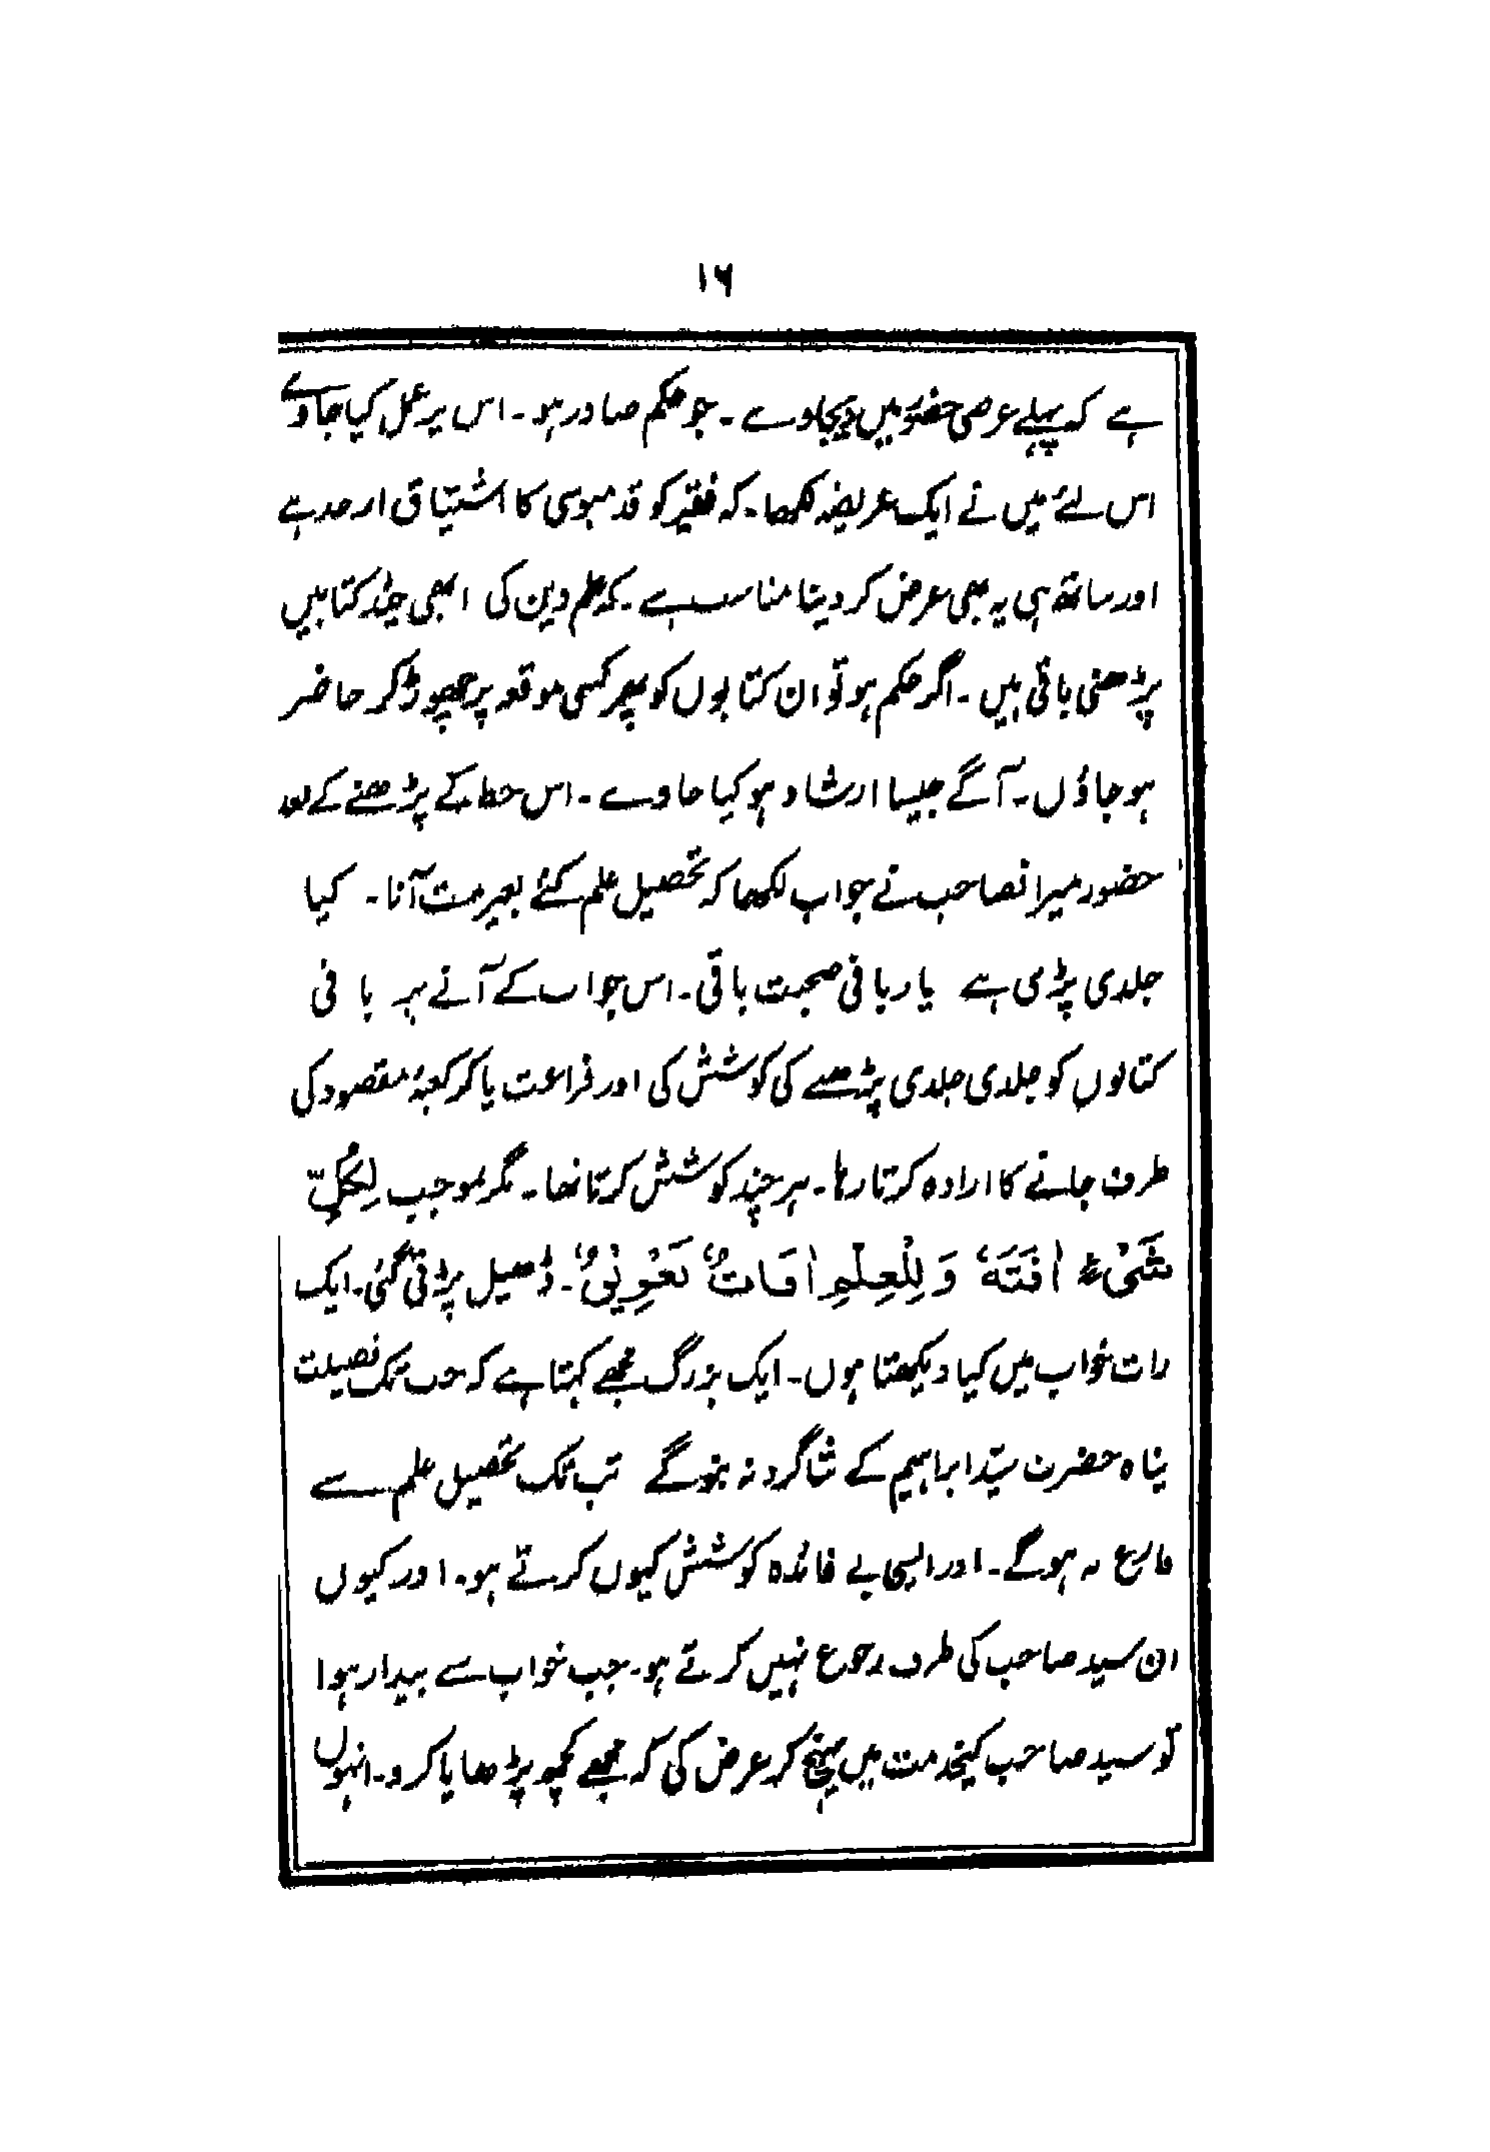 ۱۶
ہے کہ پہلے عرضی حضور میں دیجاوے ۔ جو حکم صادر ہو ۔ اس پر عمل کیا جاوے
اس لئے میں نے ایک عریضہ لکھا ۔ کہ فقیر کو قدمبوسی کا اشتیاق ازحد ہے
اور ساتھ ہی یہ بھی عرض کر دینا مناسب ہے ۔ کہ علم دین کی ابھی چند کتابیں
پڑھنی باقی ہیں ۔ اگر حکم ہو تو ان کتابوں کو پھر کسی موقعہ پر چھوڑ کر حاضر
ہو جاؤں ۔ آگے جیسا ارشاد ہو کیا جاوے ۔ اس خط کے پڑھنے کے بعد
حضور میرا نصاحب نے جواب لکھا کہ تحصیل علم کئے بغیر مت آنا ۔ کیا
جلدی پڑی ہے یار باقی صحبت باقی ۔ اس جواب کے آنے پر باقی
کتابوں کو جلدی جلدی پڑھنے کی کوشش کی اور فراغت پا کر کعبۂ مقصود کی
طرف جانے کا ارادہ کرتا رہا ۔ ہر چند کوشش کرتا تھا ۔ مگر بموجب لِکُلِّ
شَیْءٍ اٰفَتَہٗ وَ لِلْعِلْمِ اٰفَاتٌ ۔ ڈھیل پڑتی گئی ۔ ایک
رات خواب میں کیا دیکھتا ہوں ۔ ایک بزرگ مجھے کہتا ہے کہ جب تک فضیلت
پناہ حضرت سیّد ابراہیم کے شاگرد نہ بنو گے تب تک تحصیل علم سے
فارغ نہ ہو گے ۔ اور ایسی بے فائدہ کوشش کیوں کرتے ہو ۔ اور کیوں
ان سید صاحب کی طرف رجوع نہیں کرتے ہو ۔ جب خواب سے بیدار ہوا
تو سید صاحب کیخدمت میں پہنچ کر عرض کی کہ مجھے کچھ پڑھایا کرو ۔ انہوں